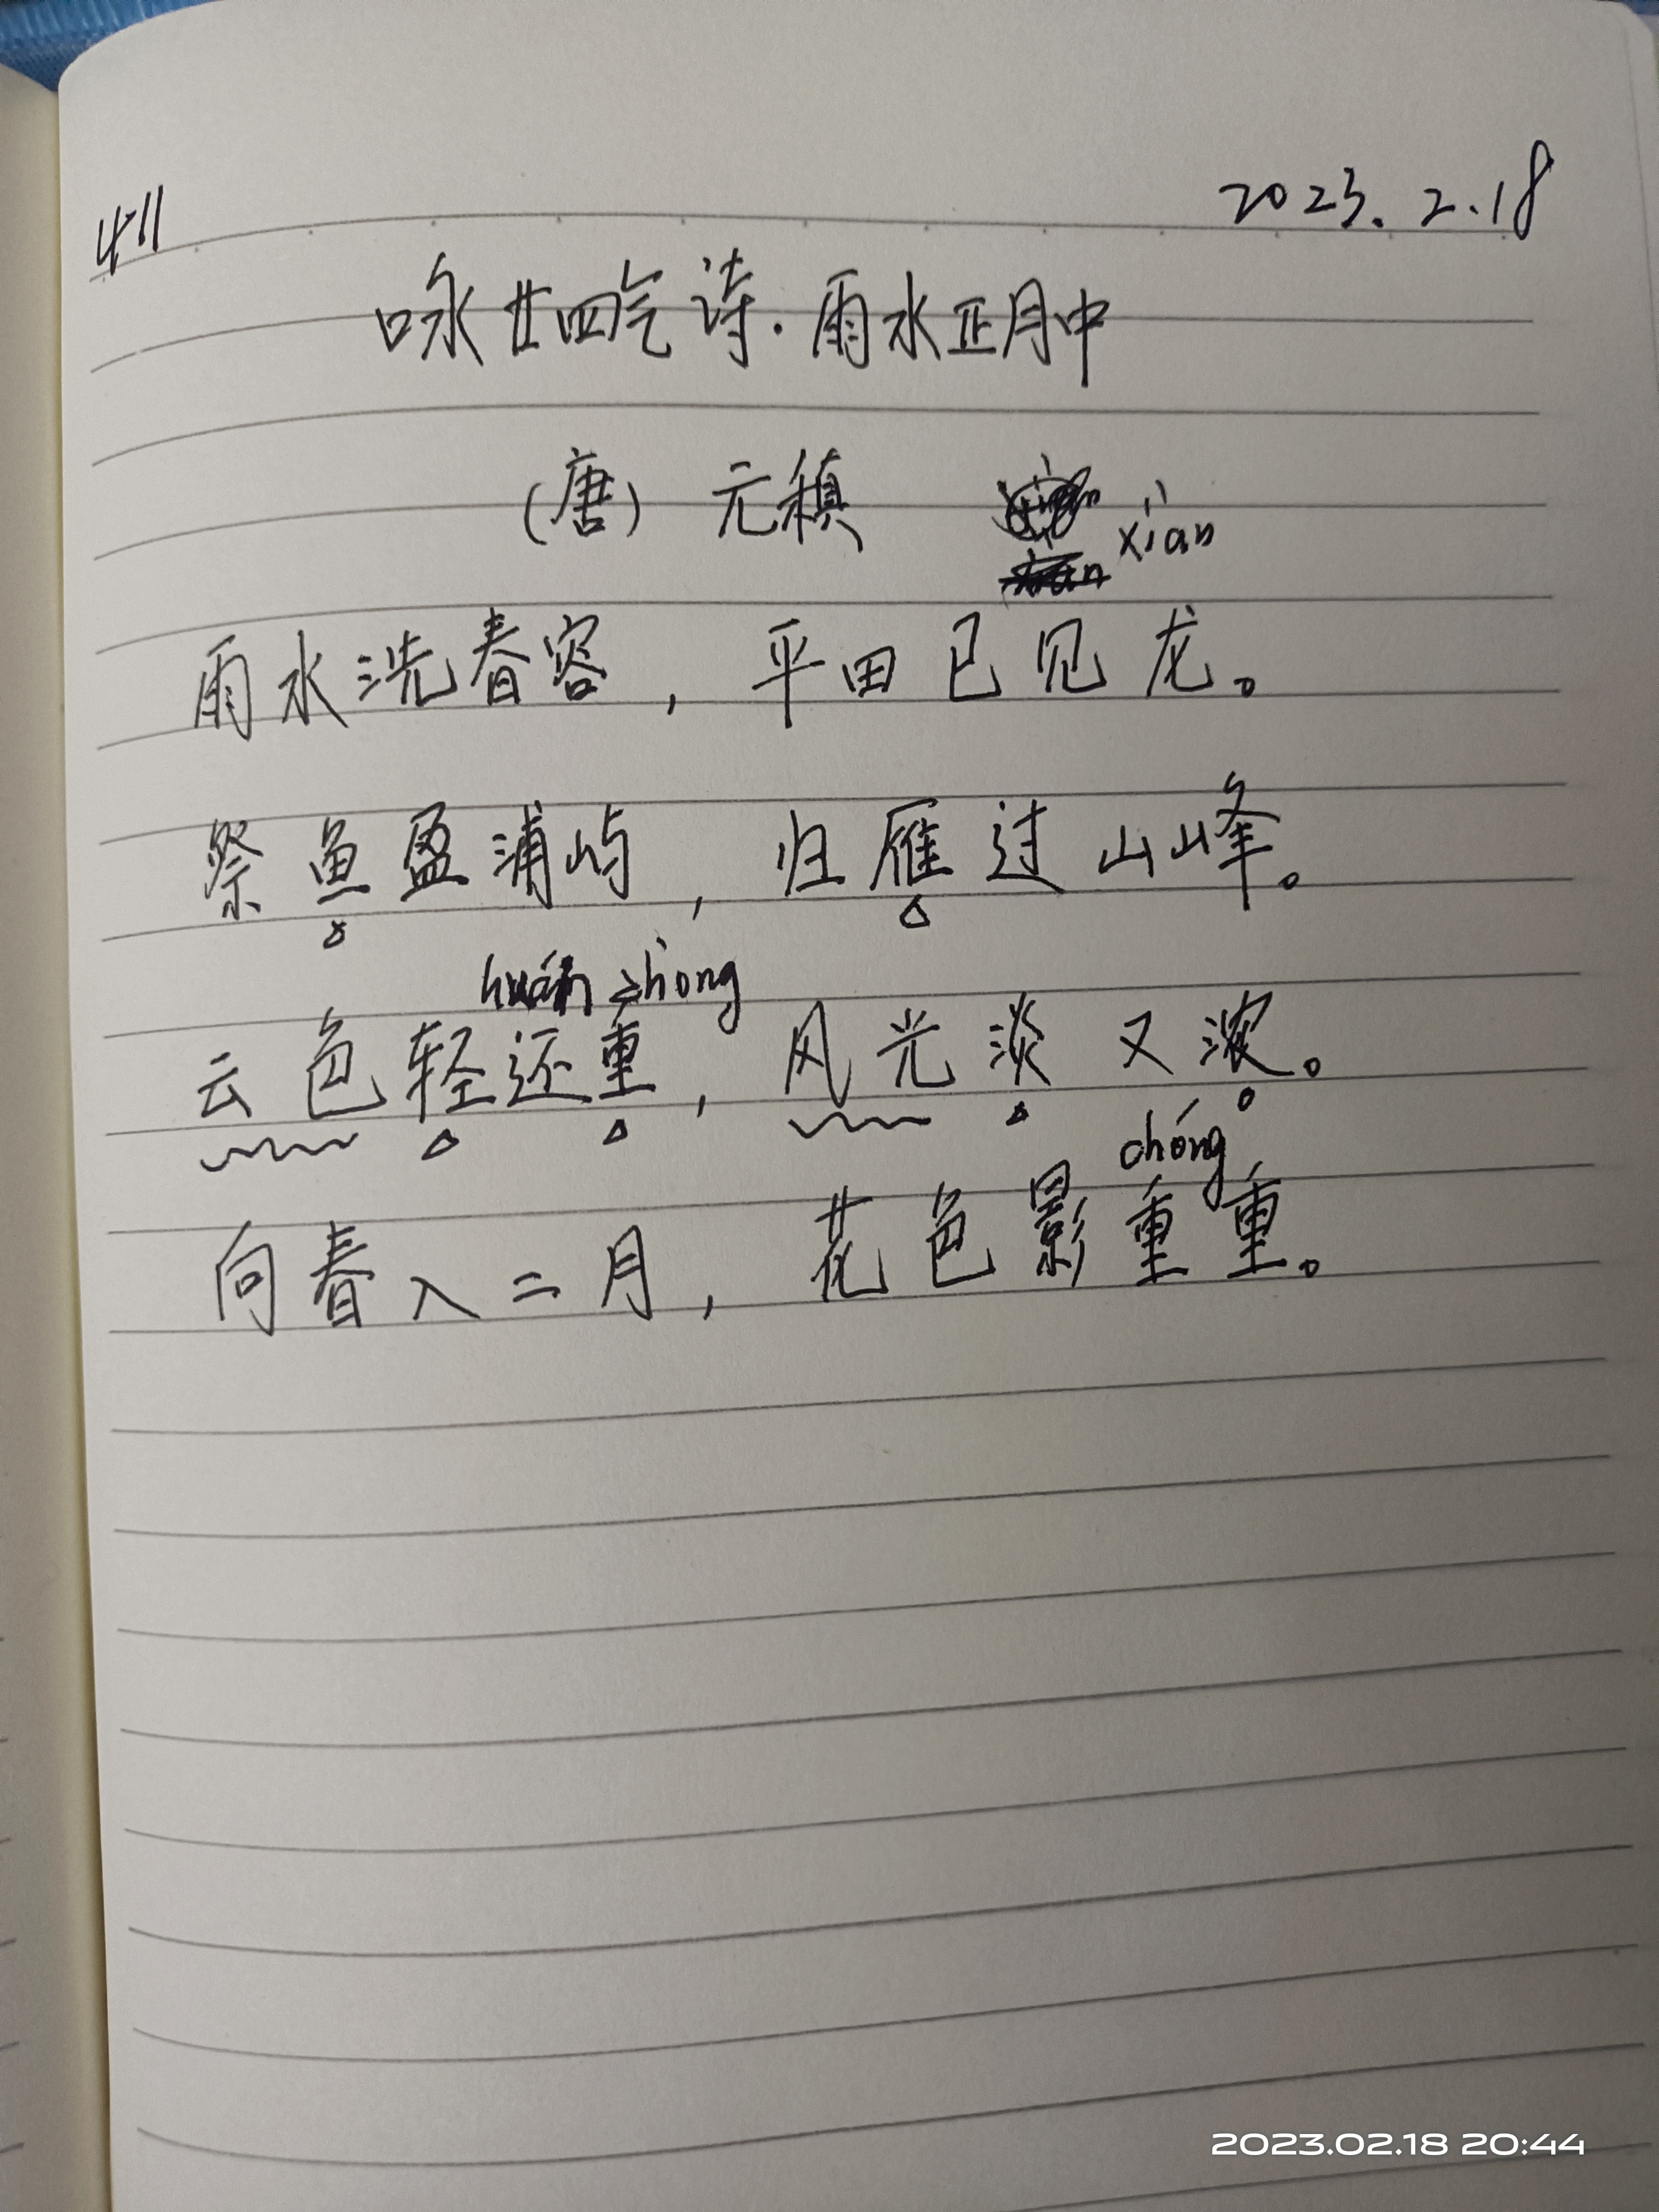 411 2023.2.18
咏廿四气诗·雨水正月中
(唐) 元稹
xiàn
雨水洗春容，平田已见龙。
祭鱼盈浦屿，归雁过山峰。
huán zhòng
云色轻还重，风光淡又浓。
chóng
向春入二月，花色影重重。
2023.02.18 20:44